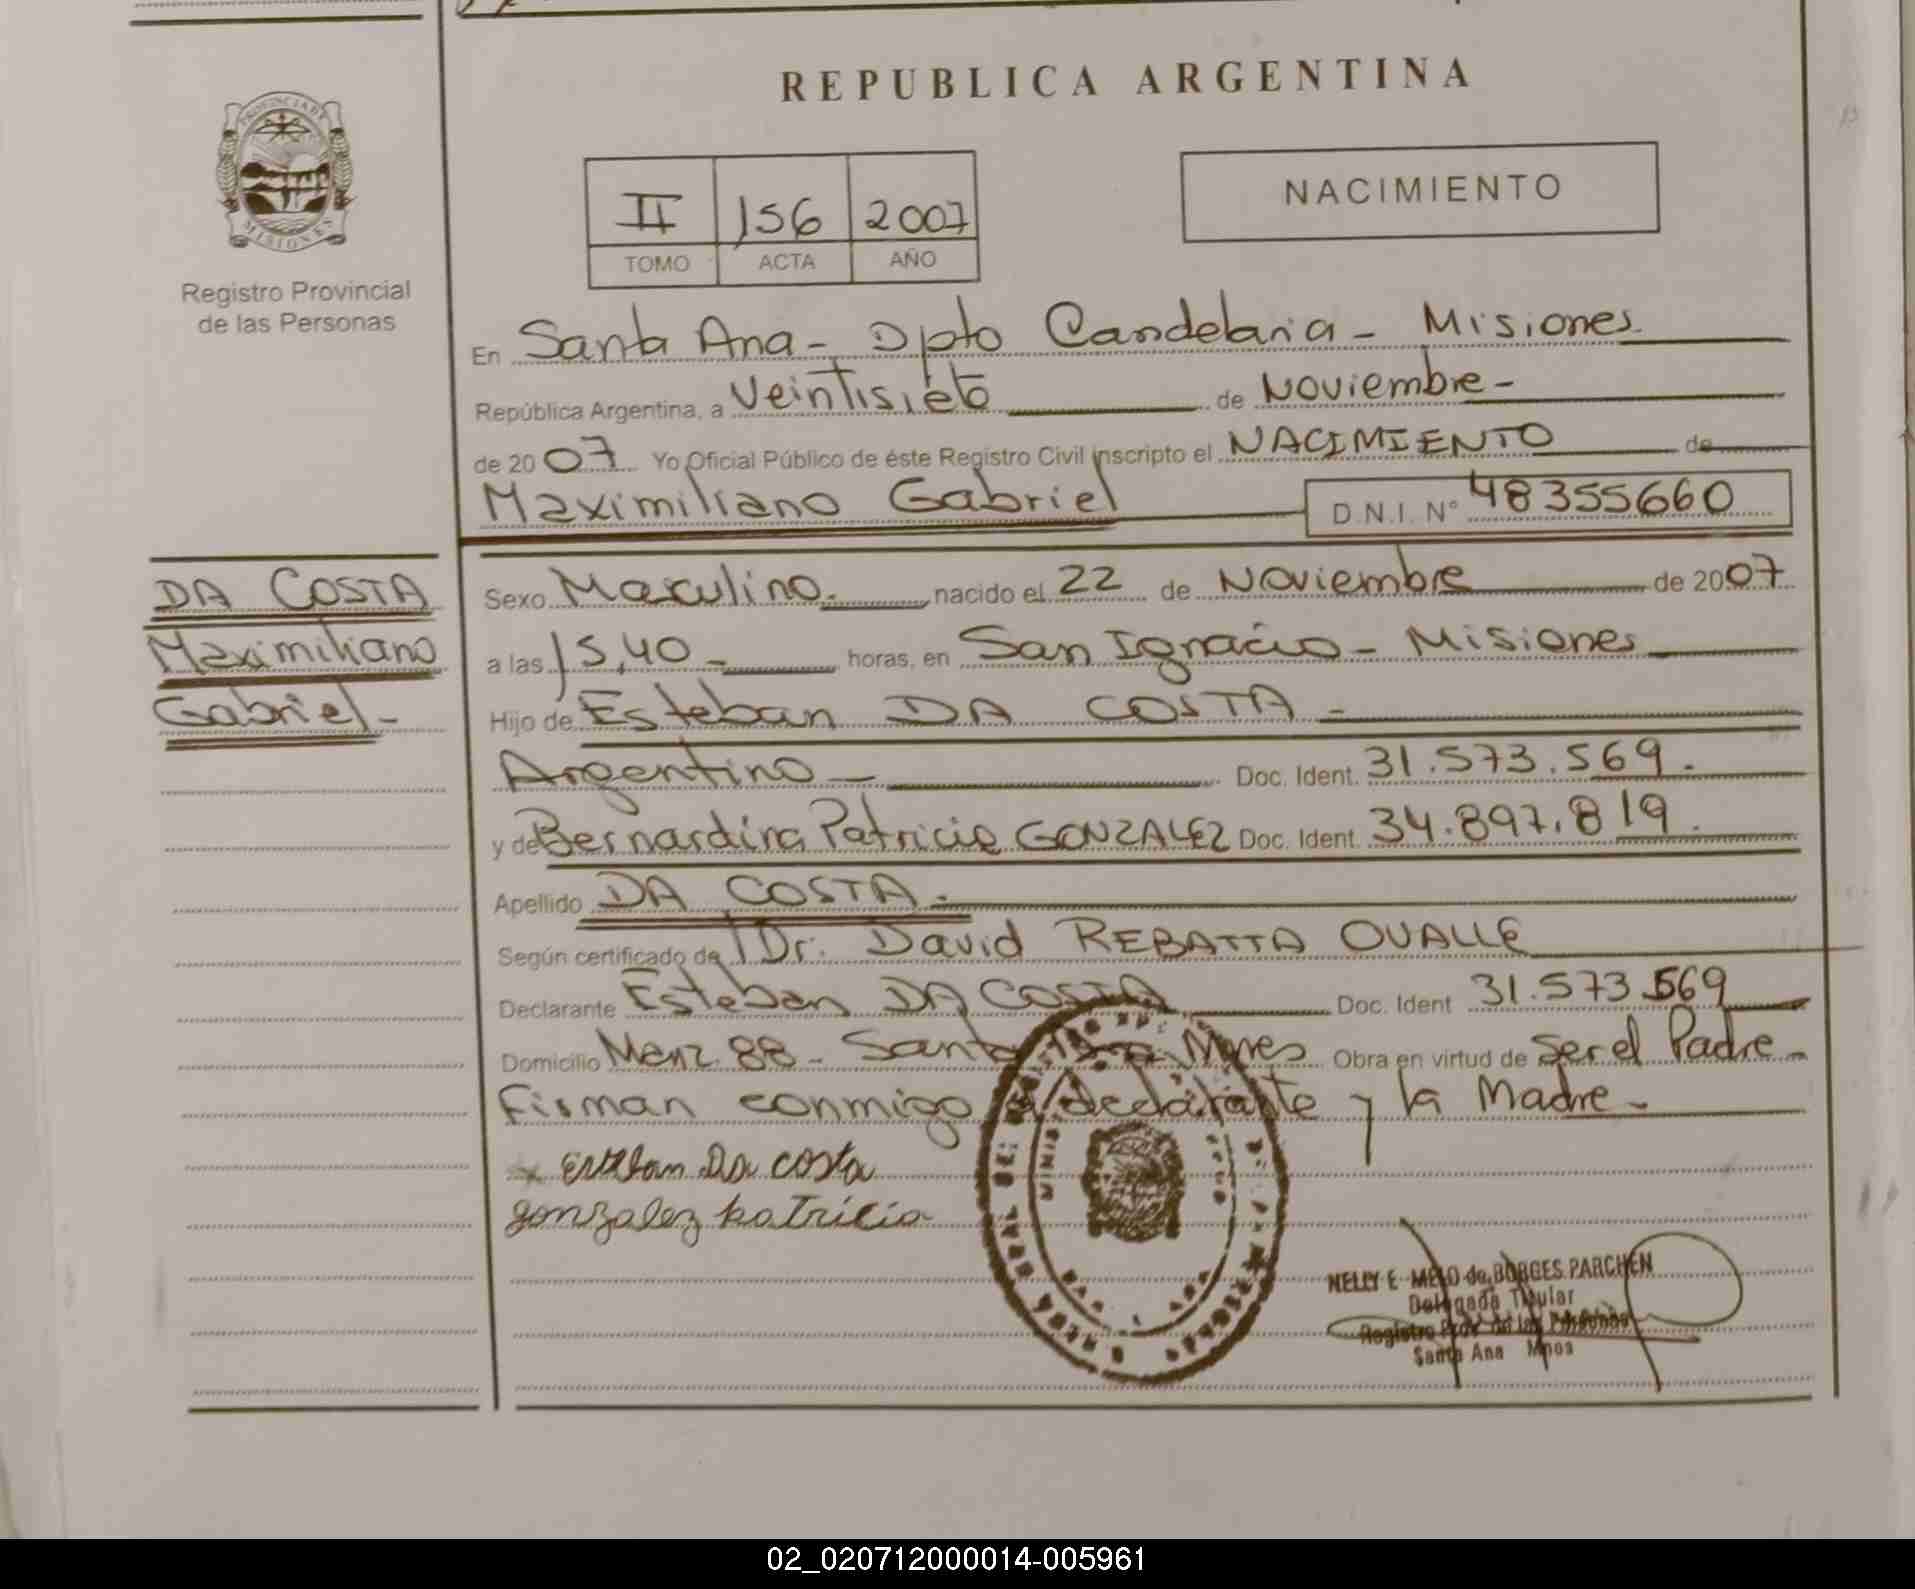 REPUBLICA ARGENTINA
PROVINCIA DE
MISIONES
Registro Provincial
de las Personas
II 156 2007
TOMO ACTA AÑO
NACIMIENTO
En Santa Ana - Dpto Candelaria - Misiones
República Argentina, a Veintisiete de Noviembre -
de 2007 Yo Oficial Público de éste Registro Civil inscripto el NACIMIENTO de
Maximiliano Gabriel D.N.I. N° 48355660
DA COSTA
Maximiliano
Gabriel -
Sexo Masculino. nacido el 22 de Noviembre de 2007
a las 15,40 - horas, en San Ignacio - Misiones
Hijo de Esteban DA COSTA -
Argentino - Doc. Ident. 31.573.569.
y de Bernardina Patricia GONZALEZ Doc. Ident. 34.897.819.
Apellido DA COSTA -
Según certificado de Dr. David REBATTA OVALLE
Declarante Esteban DA COSTA Doc. Ident 31.573.569
Domicilio Menz. 88 - Santa Ana Mnes Obra en virtud de Ser el Padre -
Firman conmigo el declarante y la Madre -
Esteban Da costa
gonzalez patricia
NELLY E. MELO de BORGES PARCHEN
Delegada Titular
Registro Prov. de las Personas
Santa Ana Mnes
02_020712000014-005961